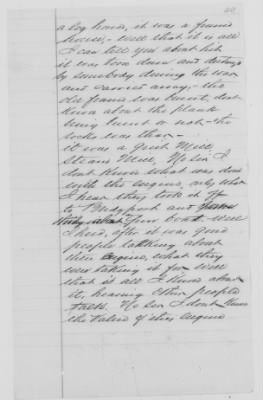 a log house, it was a frame
house, - Well that is all
I can tell you about it
it was torn down and destroyed
by somebody during the war
and carried away, - the
old frame was burnt, dont
know about the plank
being burnt or not - the
rocks was there -
it was a grist Mill
Steam Mill, No Sir I
dont know what was done
with the engine, only what
I hear, they took it off
to Bridgeport and
Steam Boat - Well
I heard, after it was gone
people talking about
their engine, what they
was taking it for Well
that is all I know about
it, hearing other people
talk. No Sir I dont know
the value of this engine